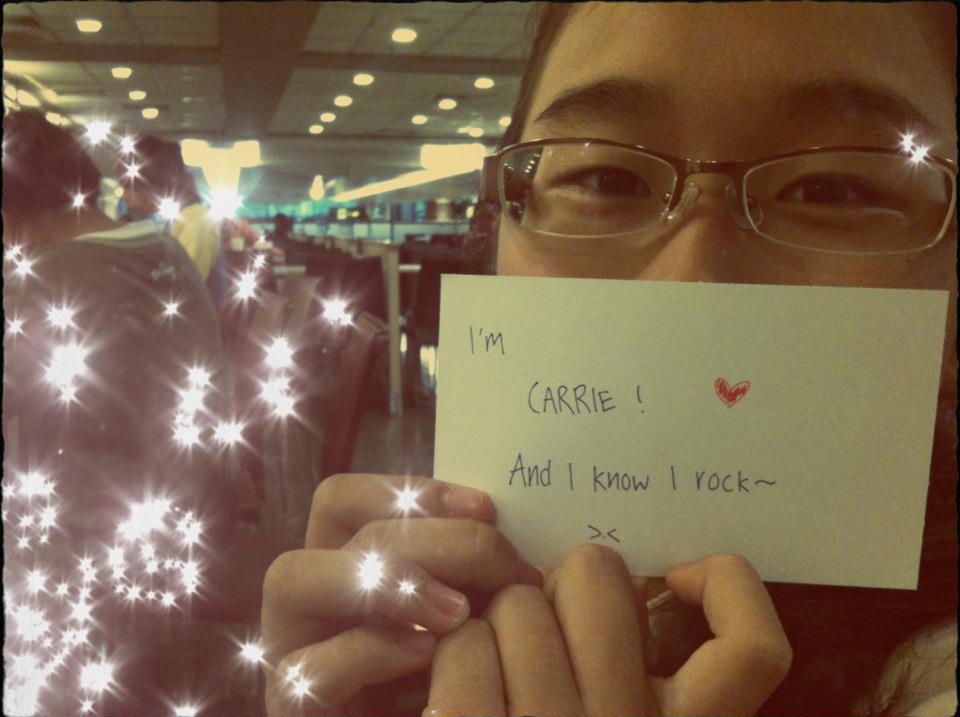 I'm
CARRIE !
And I know I rock~
>.<